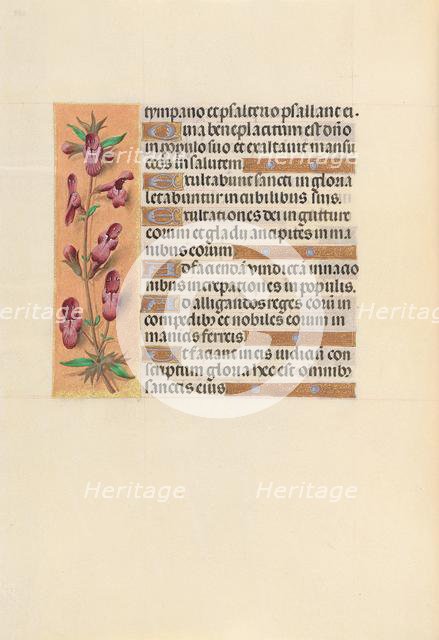 tympano et psalterio psallant ei.
Quia beneplacitum est dño
in populo suo et exaltavit mansu
etos in salutem
Exultabunt sancti in gloria
letabuntur in cubilibus suis.
Exultationes dei in gutture
eorum et gladii ancipites in ma
nibus eorum
Ad faciendã vindictã in nacio
nibus increpationes in populis.
Ad alligandos reges eorũ in
compedibꝯ et nobiles eorum in
manicis ferreis
Ut faciant in eis iudiciũ con
scriptum gloria hec est omnibꝯ
sanctis eius
Heritage Heritage Heritage
Heritage Heritage Heritage
Heritage Heritage Heritage